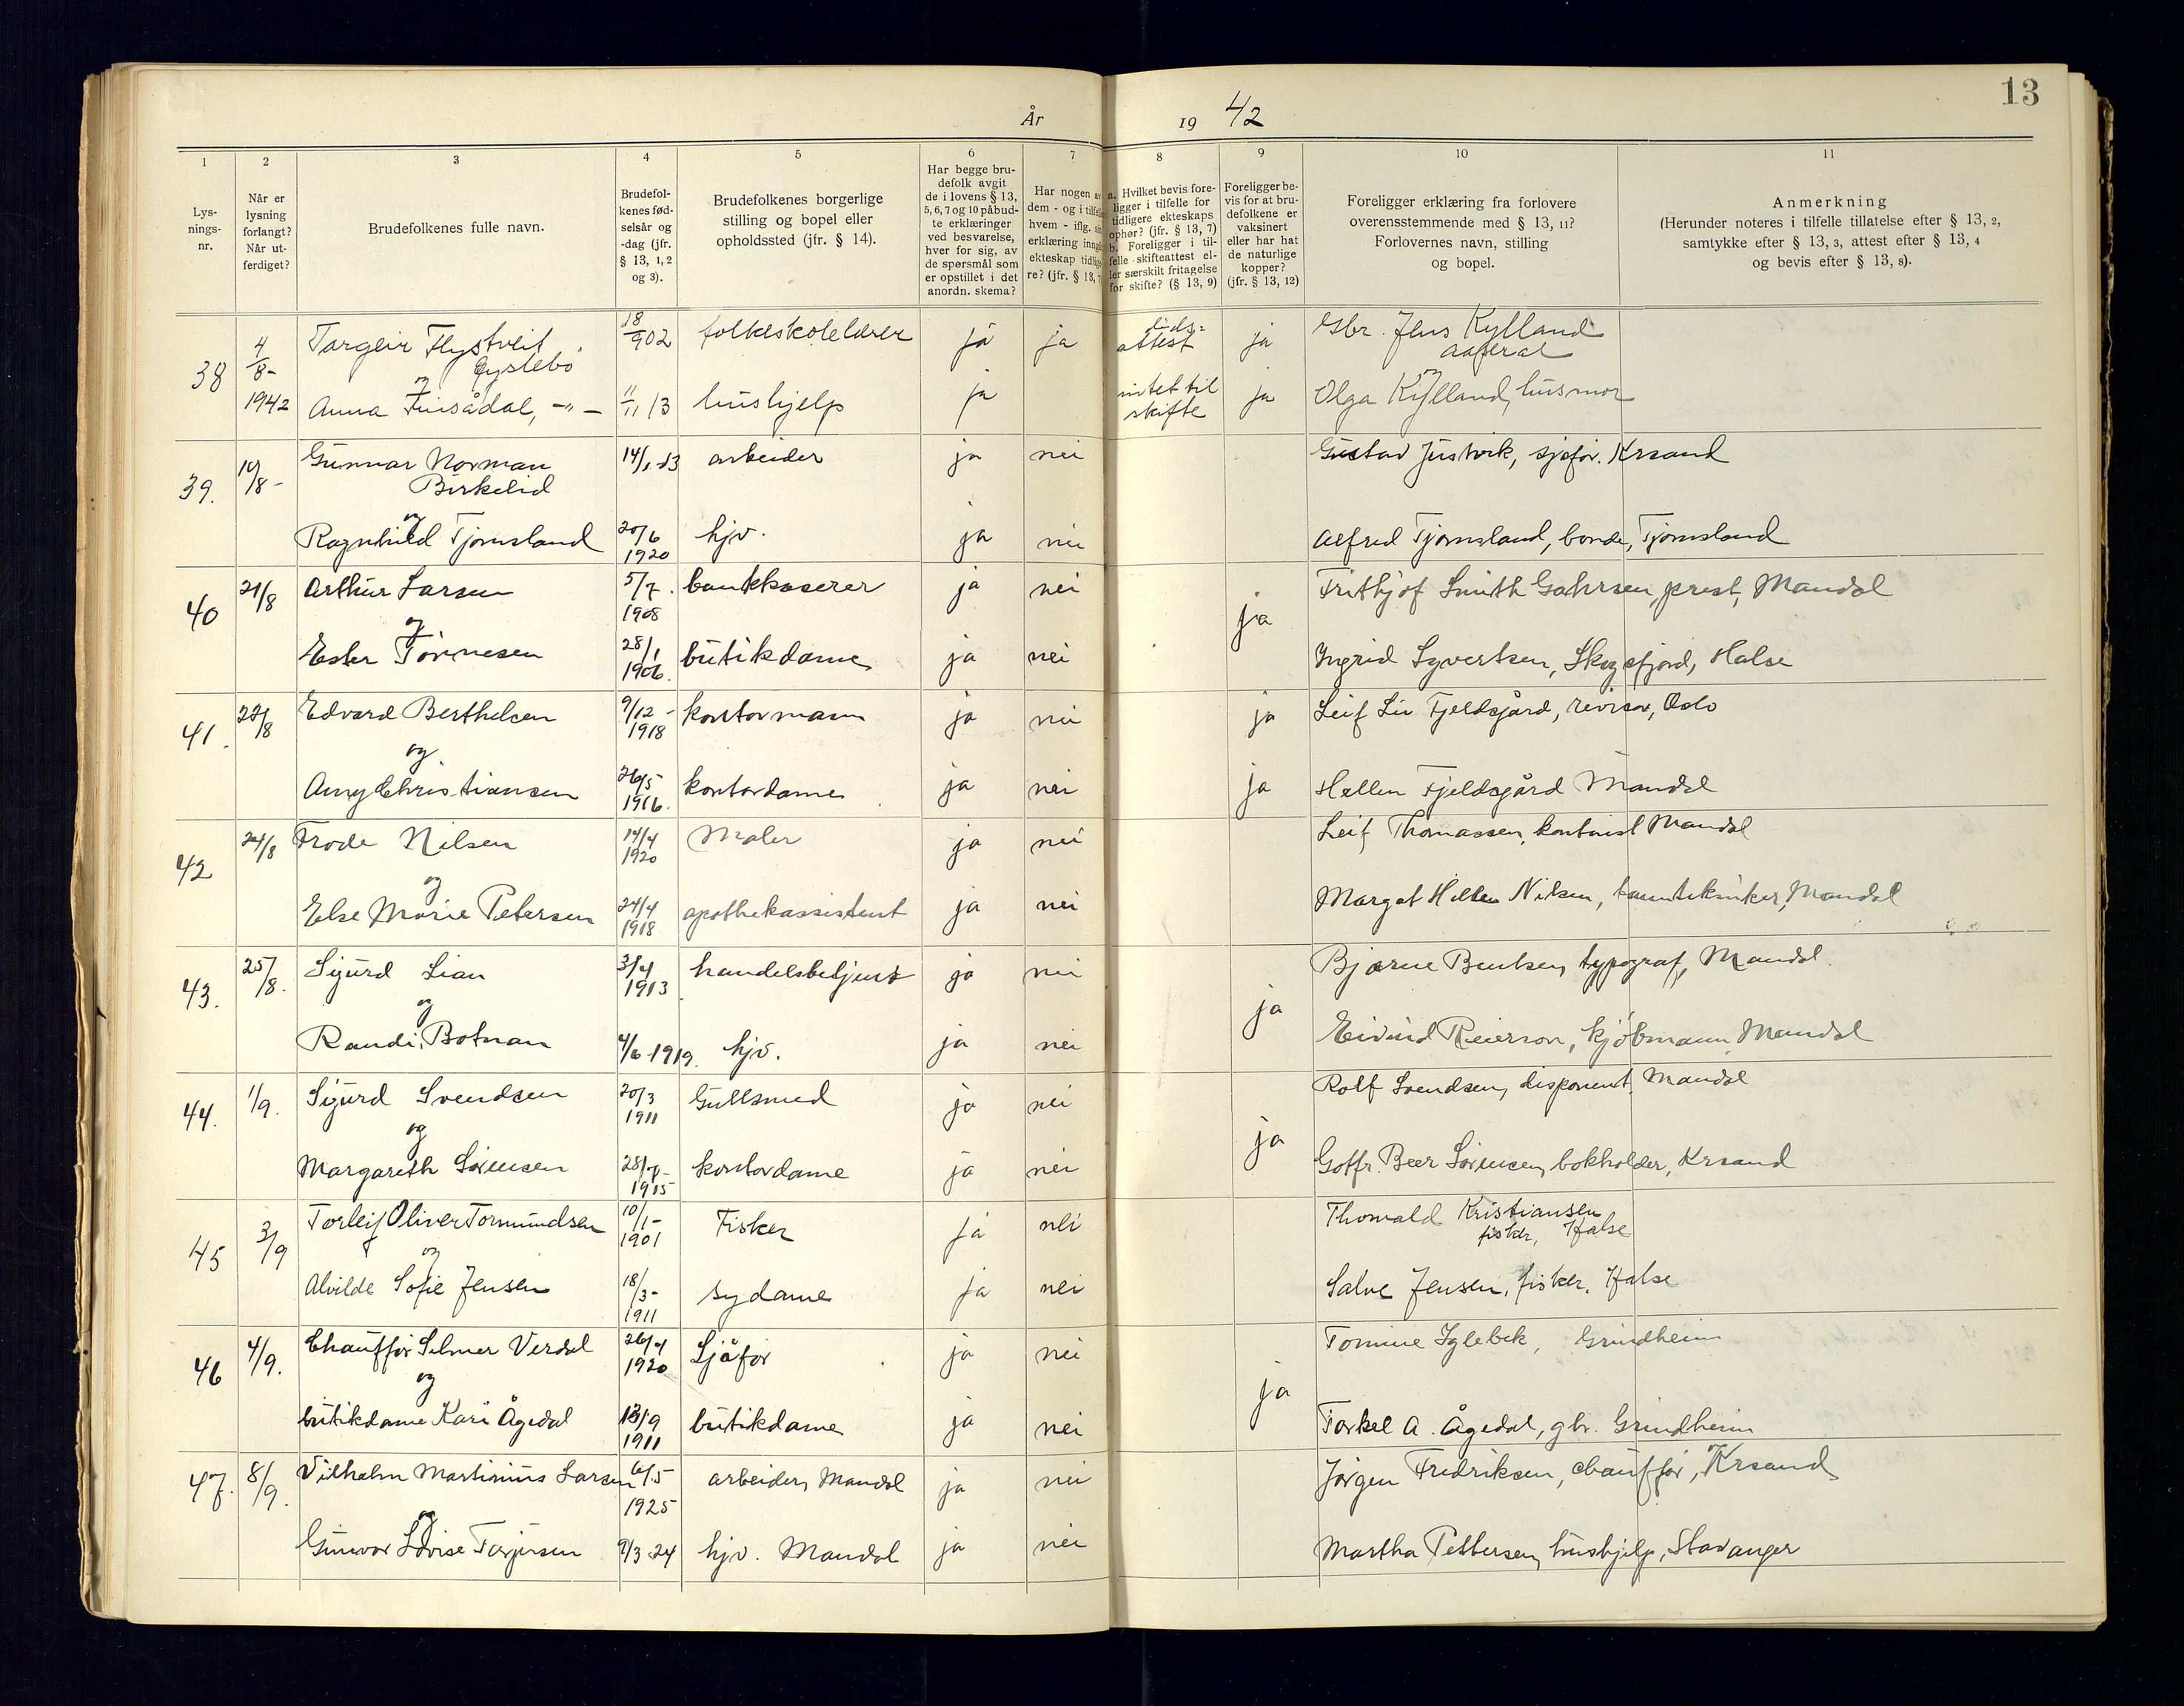 13
År 19 42
1 2 3 4 5 6 7 8 9 10 11
Lys-
nings-
nr.
Når er
lysning
forlangt?
Når ut-
ferdiget?
Brudefolkenes fulle navn.
Brudefol-
kenes fød-
selsår og
-dag (jfr.
§ 13, 1, 2
og 3).
Brudefolkenes borgerlige
stilling og bopel eller
opholdssted (jfr. § 14).
Har begge bru-
defolk avgit
de i lovens § 13,
5, 6, 7 og 10 påbud-
te erklæringer
ved besvarelse,
hver for sig, av
de spørsmål som
er opstillet i det
anordn. skema?
Har nogen av
dem - og i tilfelle
hvem - iflg. sin
erklæring inngått
ekteskap tidlige-
re? (jfr. § 13, 7)
a. Hvilket bevis fore-
ligger i tilfelle for
tidligere ekteskaps
ophør? (jfr. § 13, 7)
b. Foreligger i til-
felle skifteattest el-
ler særskilt fritagelse
for skifte? (§ 13, 9)
Foreligger be-
vis for at bru-
defolkene er
vaksinert
eller har hat
de naturlige
kopper?
(jfr. § 13, 12)
Foreligger erklæring fra forlovere
overensstemmende med § 13, 11?
Forlovernes navn, stilling
og bopel.
Anmerkning
(Herunder noteres i tilfelle tillatelse efter § 13, 2,
samtykke efter § 13, 3, attest efter § 13, 4
og bevis efter § 13, 8).
38 4/8- 1942 Targeir Flystveit, Øyslebø 18/9 02 folkeskolelærer ja ja attest ja Gbr. Jens Kylland
og
Anna Finsådal, -"- 11/11 13 hushjelp ja intet til skifte ja Olga Kylland, husmor
39. 10/8- Gunnar Norman Birkelid 14/1 13 arbeider ja nei Gustav Justvik, sjåfør. Krsand
og
Ragnhild Tjomsland 20/6 1920 hjv. ja nei Alfred Tjomsland, bonde, Tjomsland
40 21/8 Arthur Larsen 5/7. 1908 bankkaserer ja nei ja Frithjof Smith Gahrsen, prest, Mandal
og
Ester Tønnesen 28/1 1906. butikdame ja nei Ingrid Syvertsen, Skogsfjord, Halse
41. 22/8 Edvard Berthelsen 9/12- 1918 kontormann ja nei ja Leif Liv Fjeldsgård, revisor, Oslo
og
Amy Christiansen 26/5 1916. kontordame ja nei ja Hellen Fjeldsgård Mandal
42 24/8 Frode Nilsen 14/4 1920 Maler ja nei Leif Thomassen, kontorist Mandal
og
Else Marie Petersen 24/4 1918 apothekassistent ja nei Margot Helene Nilsen, tanntekniker, Mandal
43. 25/8. Sigurd Lian 3/4 1913 handelsbetjent ja nei ja Bjarne Bentsen, typograf, Mandal.
og
Randi Botnan 4/6 1919. hjv. ja nei Eivind Reierson, kjøbmann, Mandal
44. 1/9. Sigurd Svendsen 20/3 1911 Gullsmed ja nei ja Rolf Svendsen, disponent, Mandal
og
Margareth Sørensen 28/7- 1915 kontordame ja nei Gotfr. Beer Sørensen, bokholder, Krsand
45 3/9 Torleif Oliver Tormundsen 10/1- 1901 Fisker ja nei Thorvald Kristiansen
fisker, Halse
og
Alvilde Sofie Jensen 18/3- 1911 sydame ja nei Salve Jensen, fisker, Halse
46 4/9. Chauffør Selmer Verdal 26/4 1920 Sjåfør ja nei ja Tomine Iglebek, Grindheim
og
butikdame Kari Ågedal 13/9 1911 butikdame ja nei Torkel A. Ågedal, gbr. Grindheim
47. 8/9. Vilhelm Martinius Larsen 6/5 1925 arbeider, Mandal ja nei Jørgen Fredriksen, chauffør, Krsand
og
Gunvor Lovise Torjusen 9/3 24 hjv. Mandal ja nei Martha Pettersen, hushjelp, Stavanger